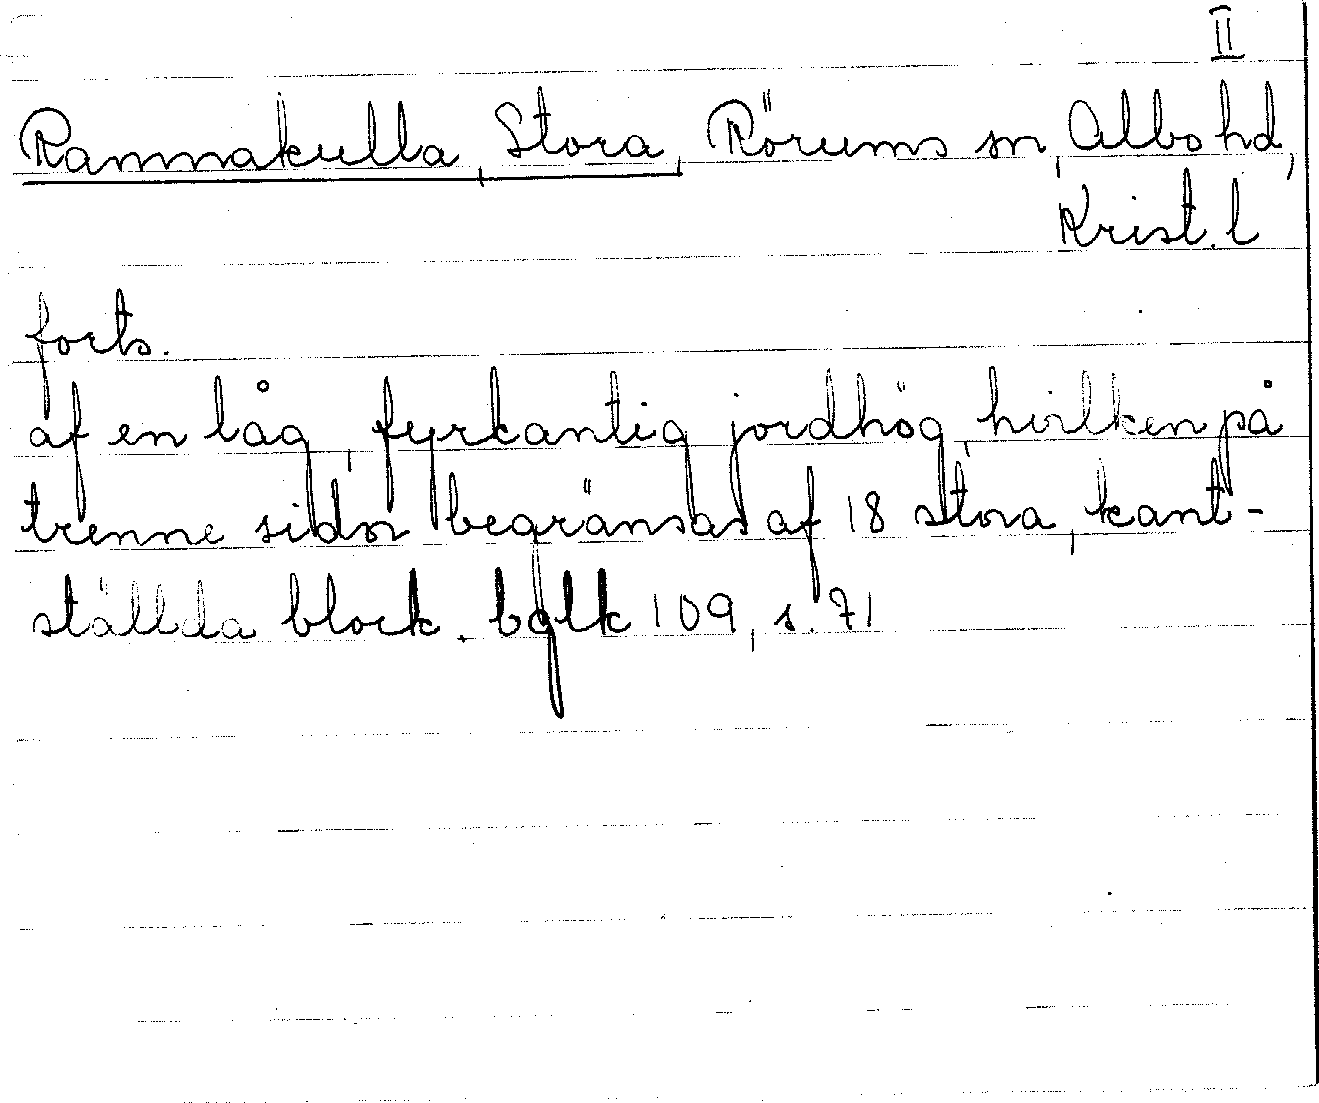 II
Rammakulla, Stora, Rörums sn, Albo hd,
Krist. l
forts.
af en låg, fyrkantig jordhög, hvilken på
trenne sidor begränsas af 18 stora, kant-
ställda block. bglk 109, s. 71